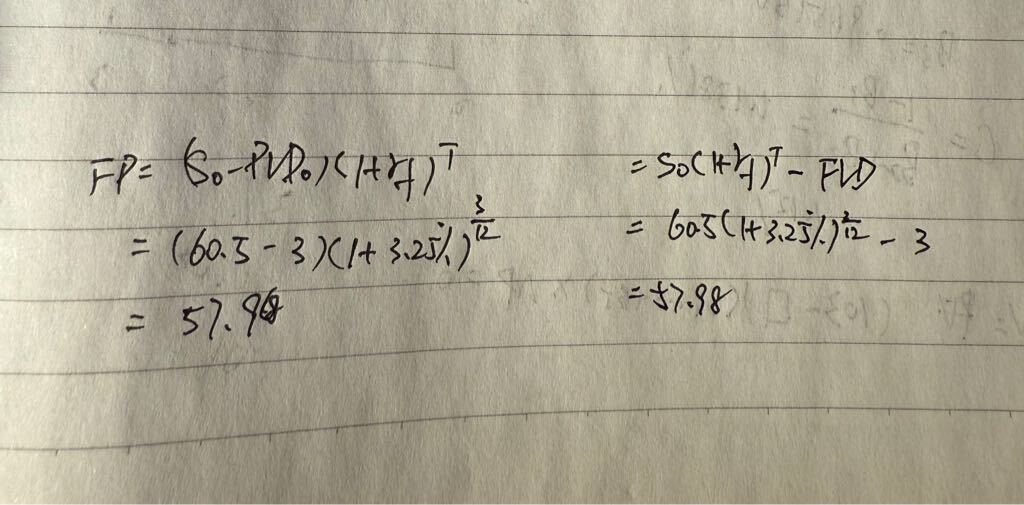 FP = (S₀ - PVD₀)(1+rf)^T
= (60.5 - 3)(1 + 3.25%)^(3/12)
= 57.96
= S₀(1+rf)^T - FVD
= 60.5(1+3.25%)^(3/12) - 3
= 57.98